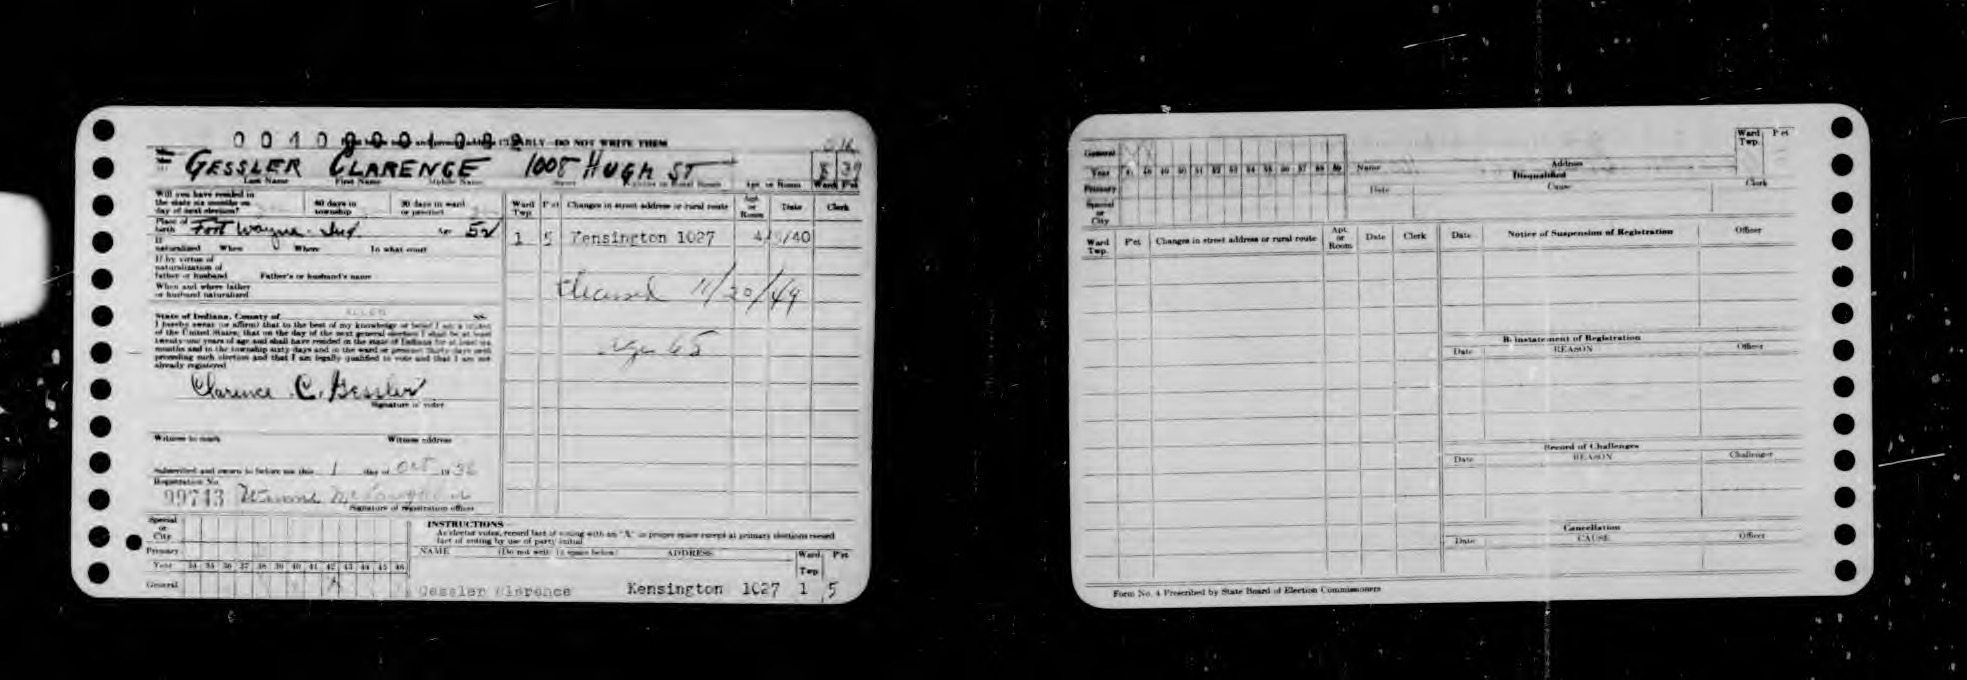 CLEARLY—DO NOT WRITE THEM
GESSLER CLARENCE 1008 HUGH ST
Last Name First Name Middle Name Apt. or Room Ward Pct
Will you have resided in
the state six months on
day of next election?
60 days in
township
30 days in ward
or precinct
Place of
birth Fort Wayne - Ind. Age 52
If
naturalized When Where In what court
If by virtue of
naturalization of
father or husband Father's or husband's name
When and where father
or husband naturalized
State of Indiana, County of ALLEN SS.
I hereby swear (or affirm) that to the best of my knowledge or belief I am a citizen
of the United States; that on the day of the next general election I shall be at least
twenty-one years of age and shall have resided in the state of Indiana for at least six
months and in the township sixty days and in the ward or precinct thirty days next
preceding such election and that I am legally qualified to vote and that I am not
already registered
Clarence C. Gessler
Signature of voter
Witness to mark Witness address
Subscribed and sworn to before me this 1 day of Oct 19
Registration No.
99743
Signature of registration officer
Ward
Twp. Pct Changes in street address or rural route Apt.
or
Room Date Clerk
1 5 Kensington 1027 40
11/20/49
age 65
Special
or
City
Primary
Year 34 35 36 37 38 39 40 41 42 43 44 45 46
General X
INSTRUCTIONS
As elector votes, record fact of voting with an "X" in proper space except at primary elections record
fact of voting by use of party initial
NAME (Do not write in space below) ADDRESS Ward
Twp Pct
Gessler Clarence Kensington 1027 1 5
General
Year 47 48 49 50 51 52 53 54 55 56 57 58 59
Primary
Special
or
City
Name Address
Ward
Twp. Pct
Disqualified
Date Cause Clerk
Ward
Twp. Pct Changes in street address or rural route Apt.
or
Room Date Clerk
Date Notice of Suspension of Registration Officer
Re-instatement of Registration
Date REASON Officer
Record of Challenges
Date REASON Challenger
Cancellation
Date CAUSE Officer
Form No. 4 Prescribed by State Board of Election Commissioners